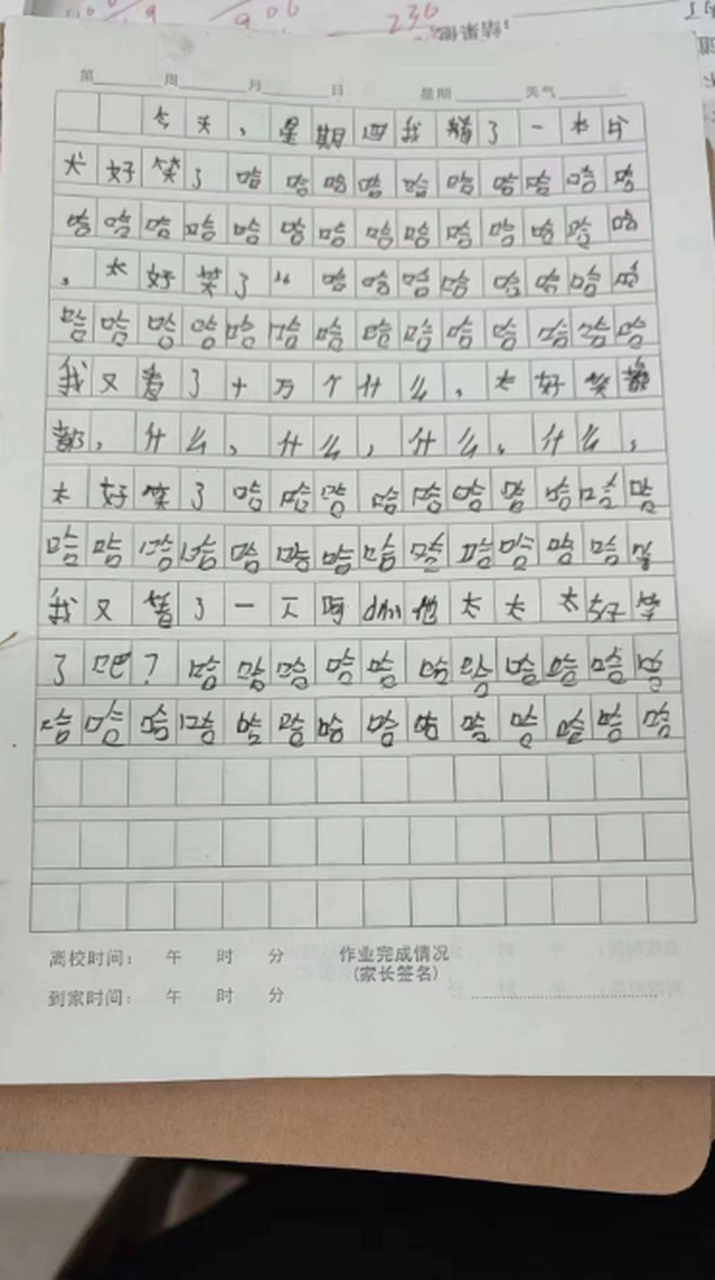 第 周 月 日 星期 天气
今天,星期四我 了一本
太好笑了哈哈哈哈哈哈哈哈哈哈
哈哈哈哈哈哈哈哈哈哈哈哈哈哈
,太好笑了“哈哈哈哈哈哈哈哈
哈哈哈哈哈哈哈哈哈哈哈哈哈哈
我又看了十万个什么,太好笑都
都,什么,什么,什么,什么,
太好笑了哈哈哈哈哈哈哈哈哈哈
哈哈哈哈哈哈哈哈哈哈哈哈哈哈
我又看了一 啊 他太太太好笑
了吧?哈哈哈哈哈哈哈哈哈哈哈
哈哈哈哈哈哈哈哈哈哈哈哈哈哈
离校时间: 午 时 分 作业完成情况
(家长签名)
到家时间: 午 时 分